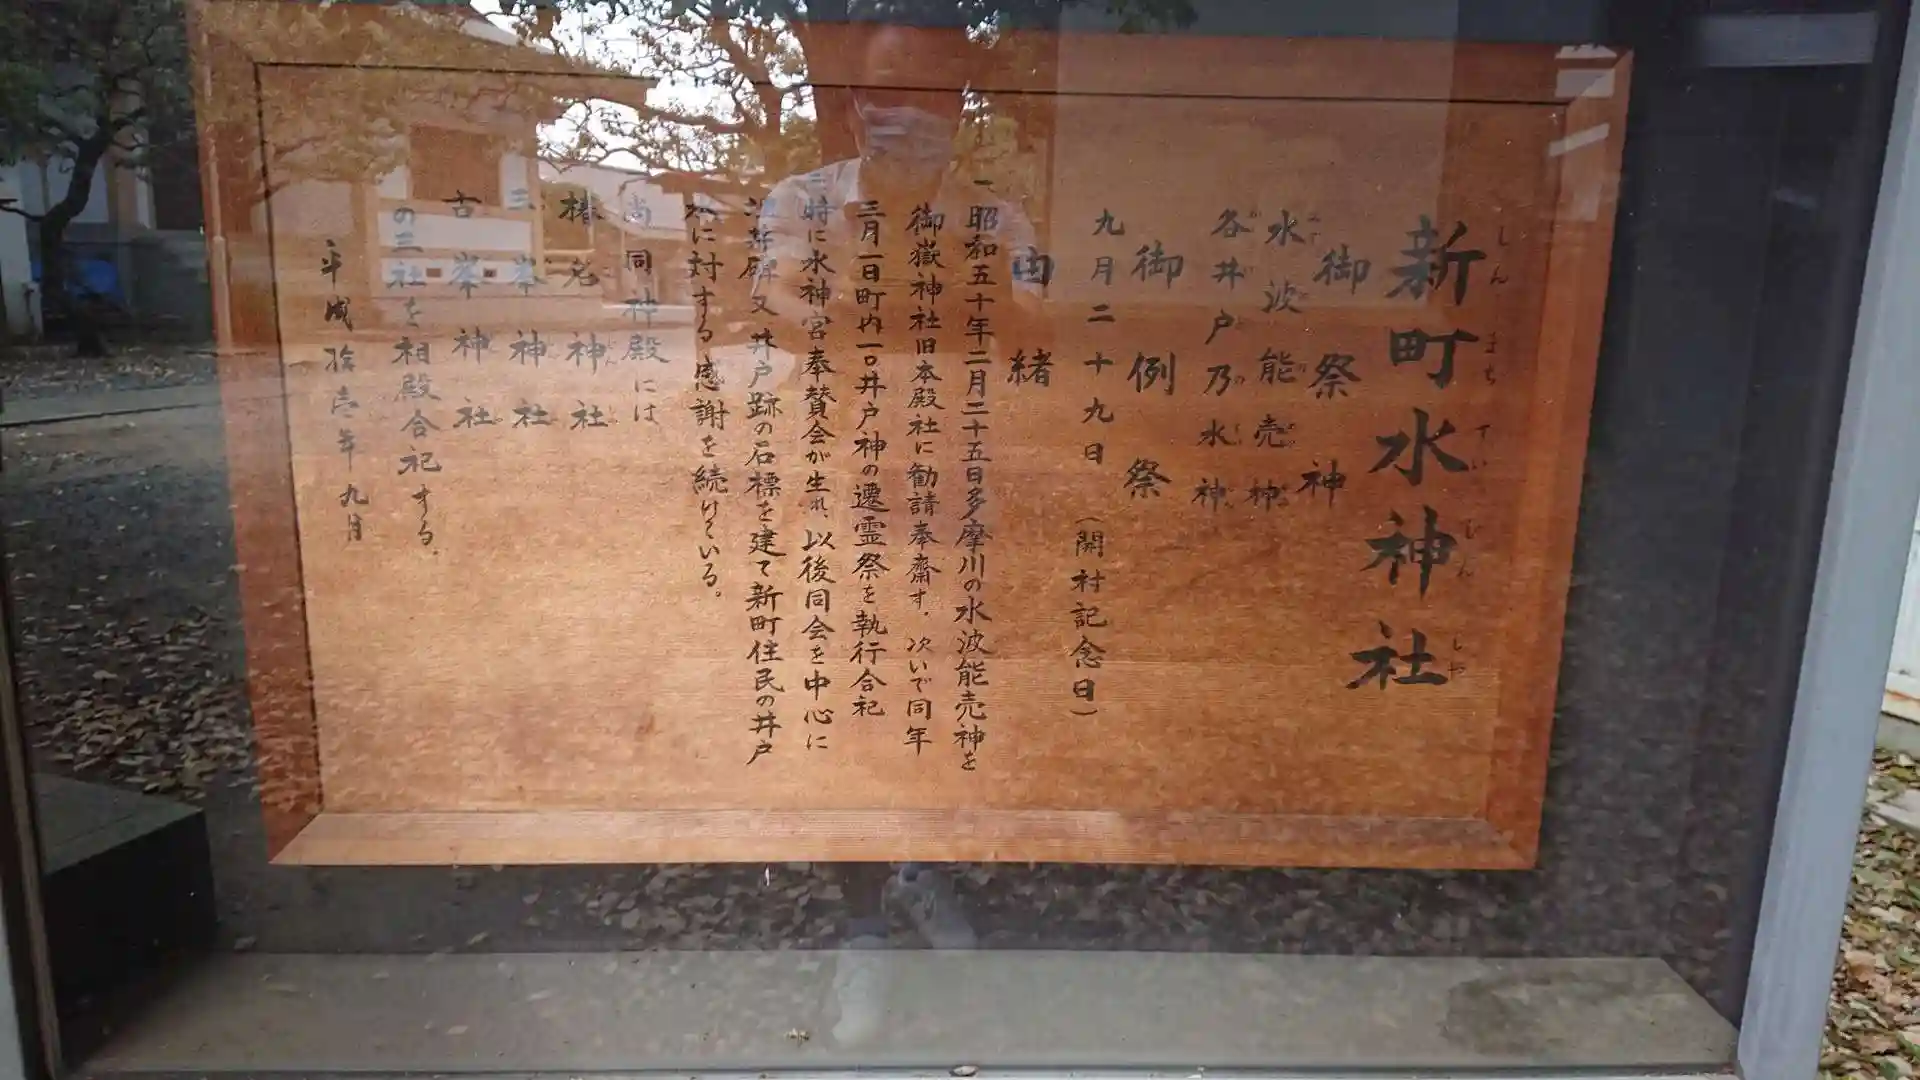 新町水神社
しんまちすいじんしゃ
御祭神
水波能売神
各井戸乃水神
御例祭
九月二十九日 (開村記念日)
由緒
一、昭和五十年二月二十五日多摩川の水波能売神を
御嶽神社旧本殿社に勧請奉齋す。次いで同年
三月一日町内一〇井戸神の遷霊祭を執行合祀
時に水神宮奉賛会が生れ、以後同会を中心に
井碑又井戸跡の石標を建て新町住民の井戸
水に対する感謝を続けている。
尚同神殿には
椿名神社
三峯神社
古峯神社
の三社を相殿合祀する。
平成拾壱年九月